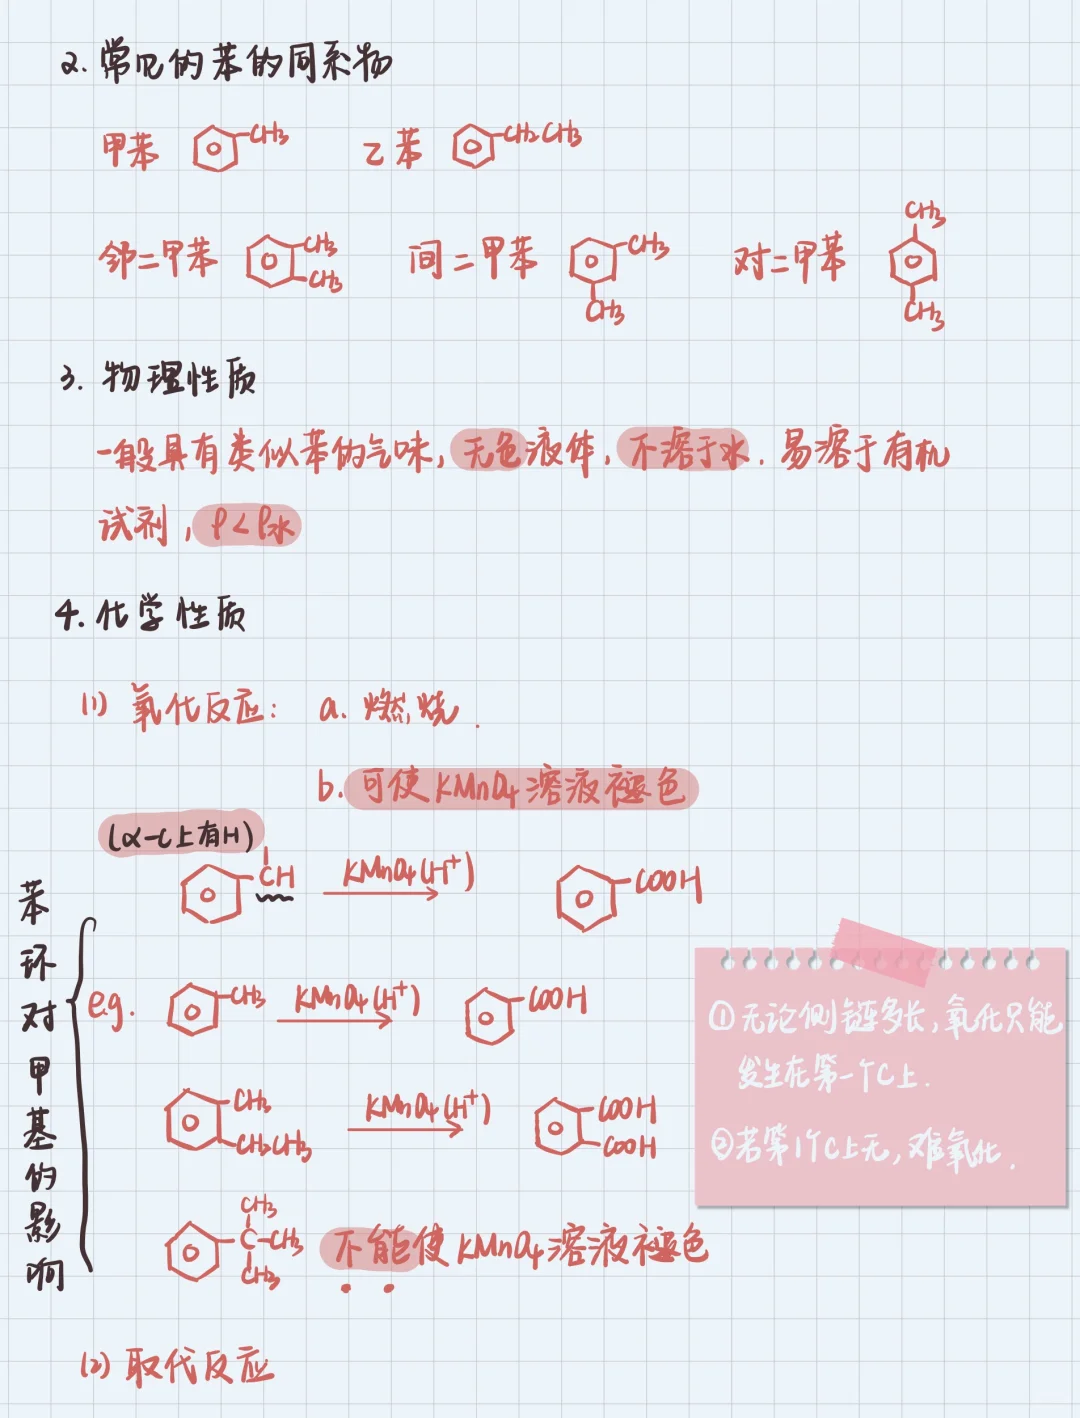 2. 常见的苯的同系物
甲苯 CH3 乙苯 CH2CH3
邻二甲苯 CH3 CH3 间二甲苯 CH3 CH3 对二甲苯 CH3 CH3
3. 物理性质
一般具有类似苯的气味, 无色液体, 不溶于水. 易溶于有机
试剂, ρ<ρ水
4. 化学性质
(1) 氧化反应: a. 燃烧.
b. 可使KMnO4溶液褪色
(α-C上有H)
CH KMnO4(H+) COOH
苯环对甲基的影响
e.g. CH3 KMnO4(H+) COOH
CH3 CH2CH3 KMnO4(H+) COOH COOH
CH3 C-CH3 CH3 不能使KMnO4溶液褪色
① 无论侧链多长, 氧化只能
发生在第一个C上.
② 若第1个C上无, 难氧化.
(2) 取代反应